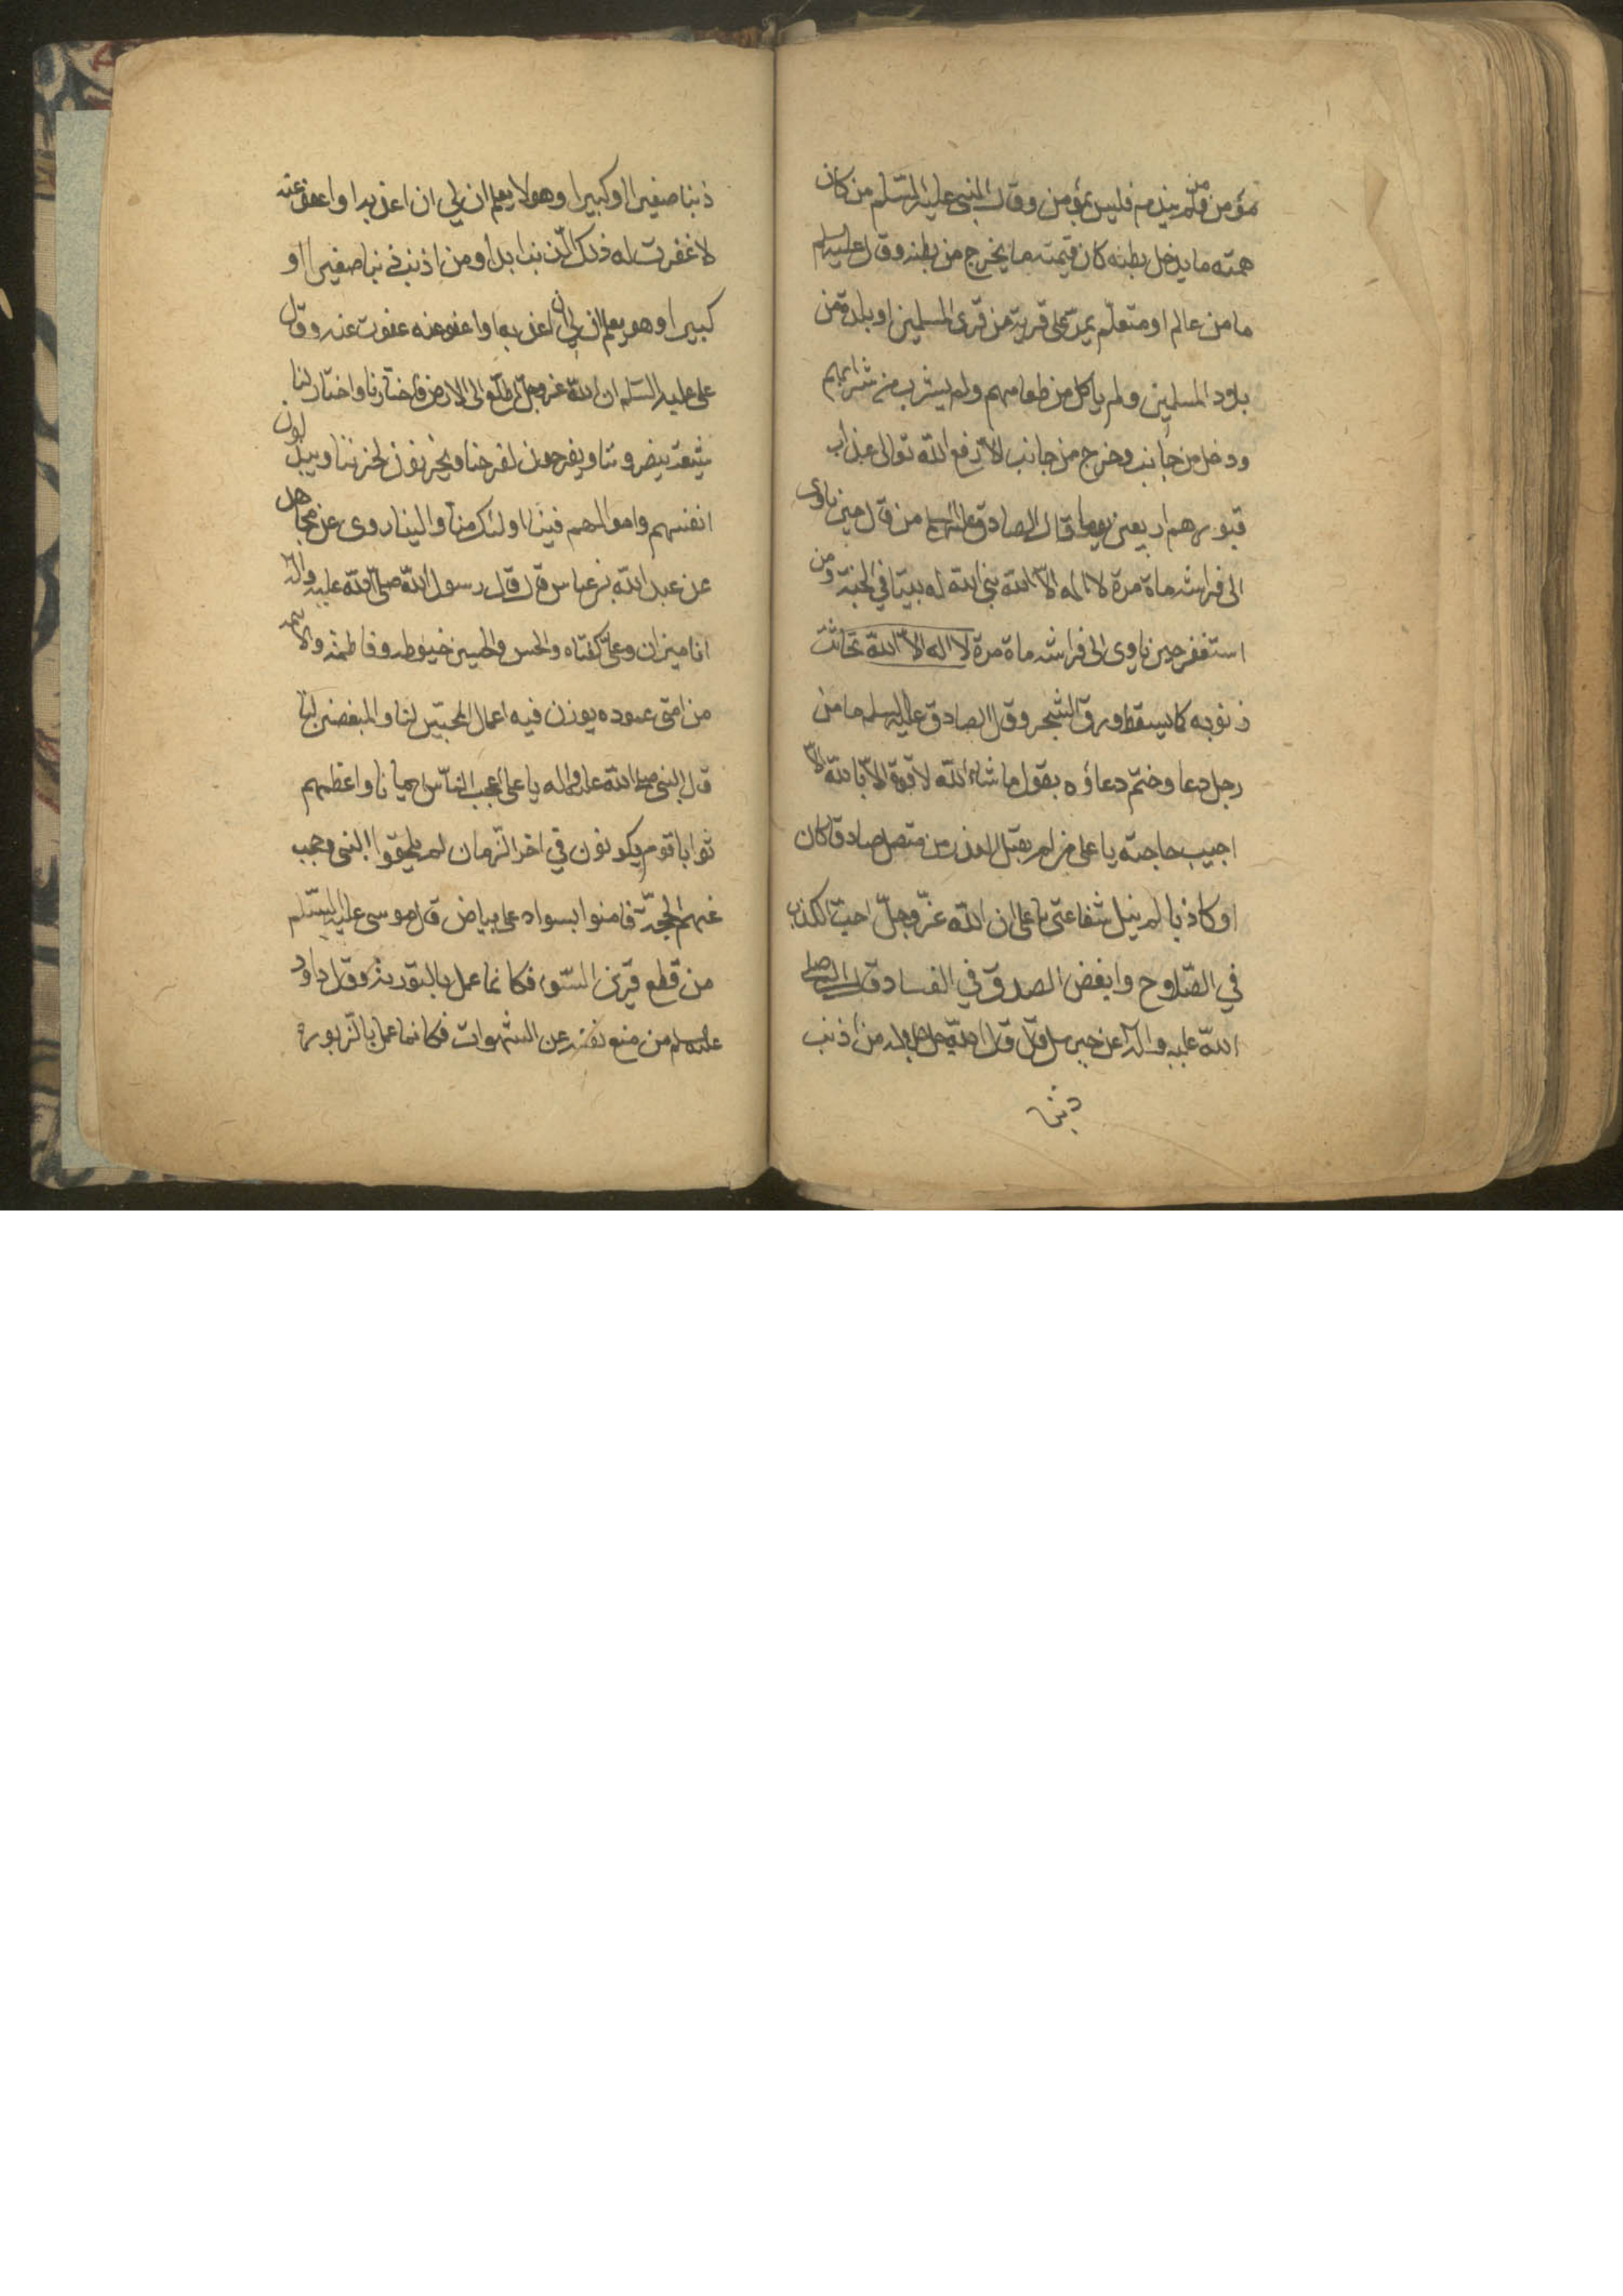 مؤمن فلم يندم فليس بمؤمن وقال النبي عليه السّلم من كان
همته ما يدخل بطنه كان قيمته ما يخرج من بطنه وقال عليه السلم
ما من عالم او متعلّم يمرّ على قرية من قرى المسلمين او بلدة من
بلاد المسلمين ولم ياكل من طعامهم ولم يشرب من شرابهم
ودخل من جانب وخرج من جانب الّا رفع الله تعالى عذاب
قبورهم اربعين يوما قال الصادق عليه السلم من قال حين ياوى
الى فراشه ماة مرة لا اله الّا الله بنى الله له بيتا في الجنة ومن
استغفر حين ياوى الى فراشه ماة مرة لا اله الّا الله تحاتت
ذنوبه كما يسقط ورق الشجر وقال الصادق عليه السلم ما من
رجل دعا وختم دعاؤه بقول ما شاء الله لا قوة الّا بالله الّا
اجيب حاجته يا على من لم يقبل العذر من متصل صادقا كان
او كاذبا لم ينل شفاعتى يا على ان الله عزّ وجلّ احبّ الكذب
في الصّلاح وابغض الصدق في الفساد قال النبي صلى
الله عليه واله عن جبرئيل قال قال الله جل جلاله من اذنب
ذنبا
ذنبا صغيرا او كبيرا وهو لا يعلم ان لي ان اعذبه او اعفو عنه
لا غفرت له ذلك الذنب ابدا ومن اذنب ذنبا صغيرا او
كبيرا وهو يعلم ان لي ان اعذبه او اعفو عنه عفوت عنه وقال
على عليه السّلم ان الله عز وجلّ اطلع الى الارض فاختارنا واختار لنا
شيعة ينصروننا ويفرحون لفرحنا ويحزنون لحزننا ويبذلون
انفسهم واموالهم فينا اولئك منا والينا روى عن مجاهد
عن عبد الله بن عباس قال قال رسول الله صلّى الله عليه واله
انا ميزان وعلىّ كفتاه والحسن والحسين خيوطه وفاطمة والائمة
من امتى عموده يوزن فيه اعمال المحبّين لنا والمبغضين لنا
قال النبي صلى الله عليه واله يا على اعجب النّاس ايمانا واعظمهم
ثوابا قوم يكونون في اخر الزّمان لم يلحقوا النبى وحجب
عنهم الحجّة فامنوا بسواد على بياض قال موسى عليه السّلم
من قطع قرين السّوء فكانما عمل بالتورية وقال داود
عليه السلم من منع نفسه عن الشهوات فكانما عمل بالزّبور